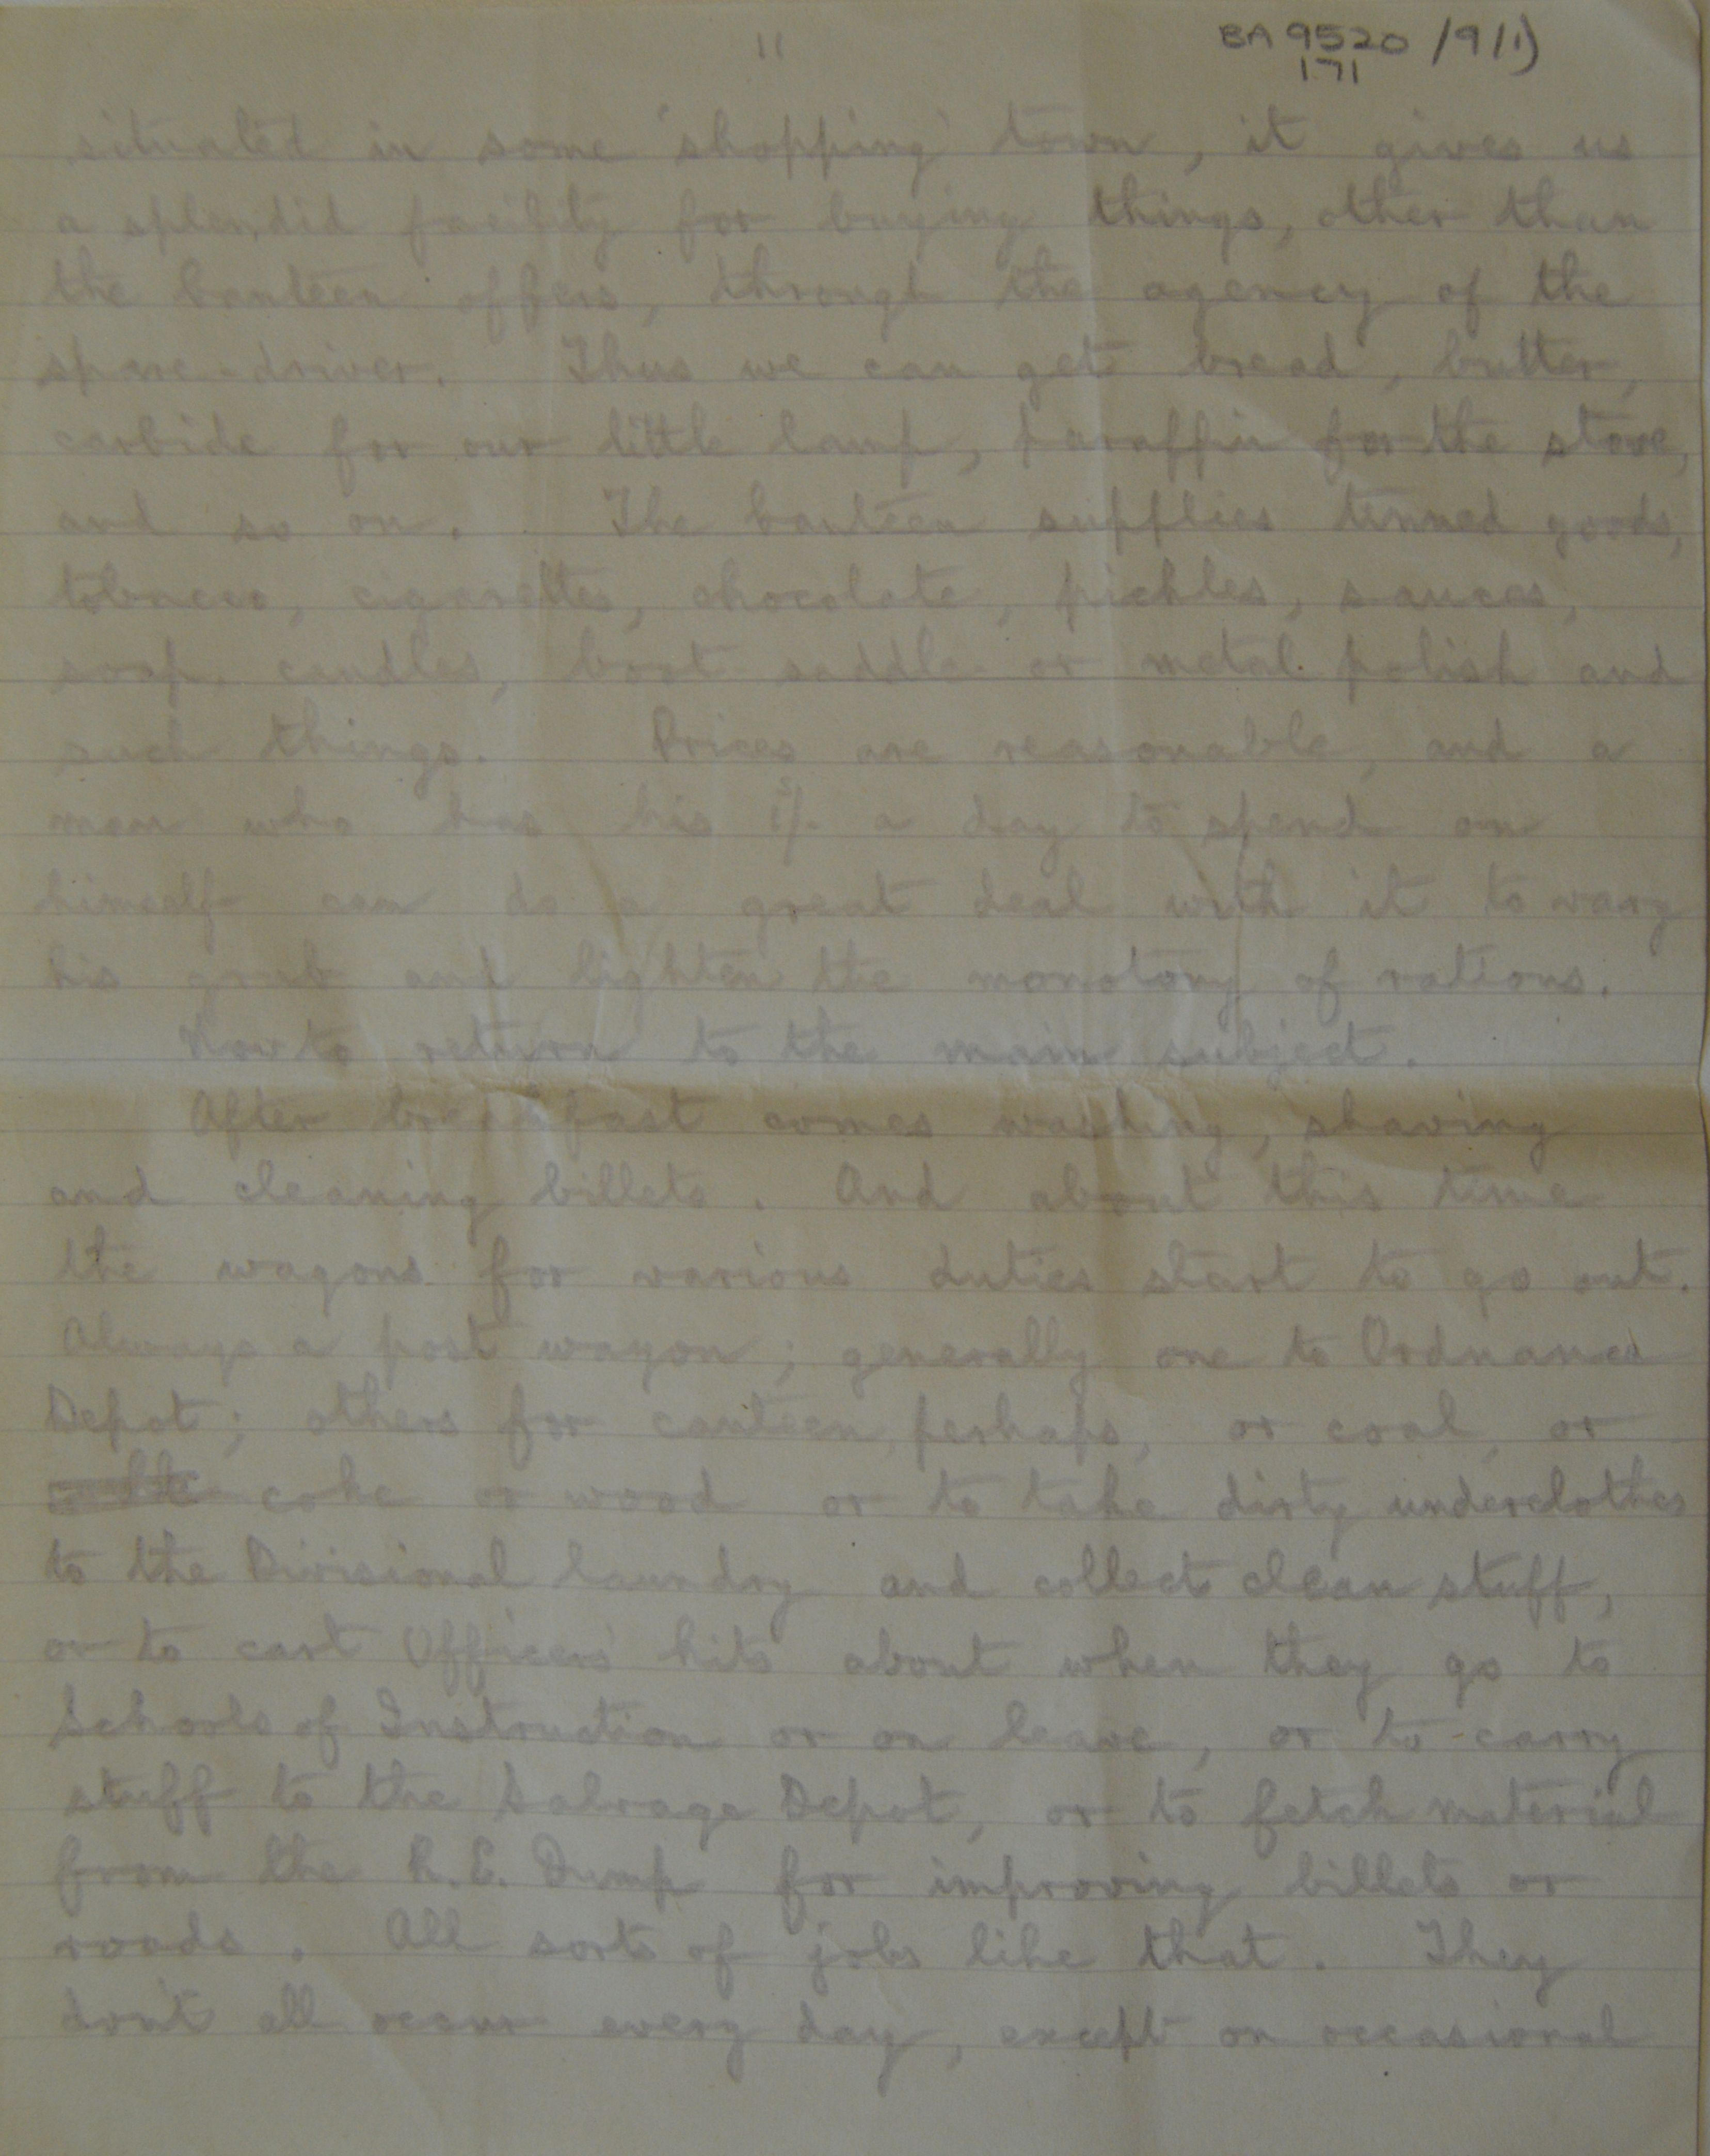 11
BA 9520 /9/1)
171
situated in some 'shopping' town, it gives us
a splendid facility for buying things, other than
the canteen offers, through the agency of the
spare-driver. Thus we can get bread, butter,
carbide for our little lamp, paraffin for the stove,
and so on. The canteen supplies tinned goods,
tobacco, cigarettes, chocolate, pickles, sauces,
soap, candles, boot saddle or metal polish and
such things. Prices are reasonable, and a
man who has his 1/- a day to spend on
himself can do a great deal with it to vary
his grub and lighten the monotony of rations.
Now to return to the main subject.
After breakfast comes washing, shaving
and cleaning billets. And about this time
the wagons for various duties start to go out.
Always a post wagon; generally one to Ordnance
Depot; others for canteen, perhaps, or coal, or
coke or wood or to take dirty underclothes
to the Divisional laundry and collect clean stuff,
or to cart Officers' kits about when they go to
Schools of Instruction or on leave, or to carry
stuff to the Salvage Depot, or to fetch material
from the R.E. Dump for improving billets or
roads. All sorts of jobs like that. They
don't all occur every day, except on occasional